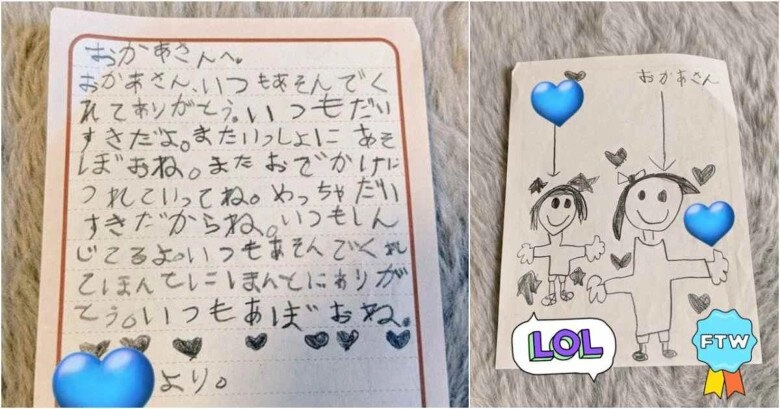 おかあさんへ。
おかあさん、いつもあそんでく
れてありがとう。いつもだい
すきだよ。またいっしょに あそ
ぼおね。また おでかけに
つれていってね。めっちゃだい
すきだからね。いつもしん
じてるよ。いつもあそんでくれ
てほんとにほんとにありが
とう。いつもあぼおね。
より。
おかあさん
LOL
FTW